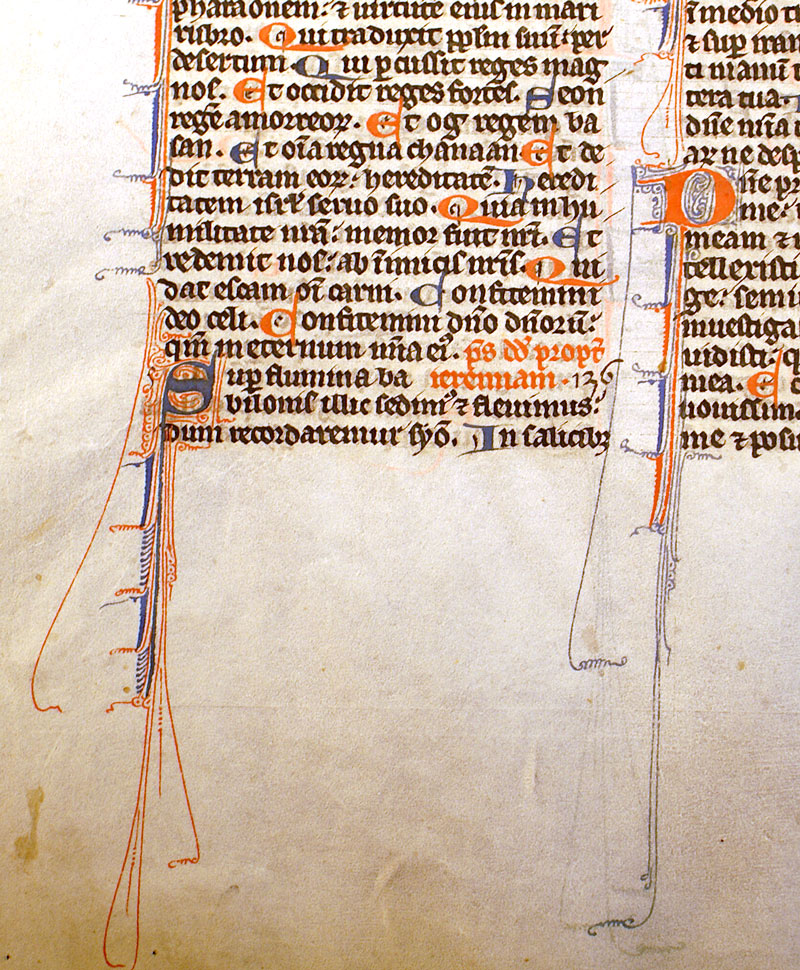 pharaonem: ⁊ uirtute eius in mari
rubro. Qui traduxit pplm suũ: per
desertum. Qui pcussit reges mag
nos. Et occidit reges fortes. Seon
regẽ amorreoꝝ. Et og regem ba
san. Et oĩa regna chanaan. Et de
dit terram eoꝝ: hereditatẽ. Heredi
tatem isrl̃ seruo suo. Quia in hu
militate nrã: memor fuit nr̃i. Et
redemit nos: ab inimicis nr̃is. Qui
dat escam oĩ carni. Confitemini
deo celi. Confitemini dño dñorũ:
qm̃ in eternum mĩa ei. ps̃ dd̃ propt̃
Sup flumina ba ieremiam. 136
bilonis illic sedimꝰ ⁊ fleuimus:
dum recordaremur syõ. In salicibꝫ
ĩ medio
⁊ sup
ti manũ
tera tua.
dñe mĩa
aꝝ ne desp
Dñe pr
me:
meam ⁊
tellexisti
ge: semi
inuestiga
uidisti: q
mea. E
nouissima
me ⁊ posu